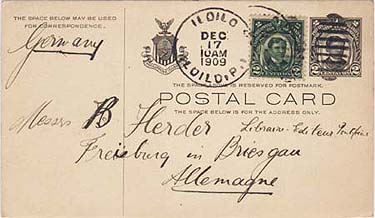 THE SPACE BELOW MAY BE USED
FOR CORRESPONDENCE.
Germany
ILOILO
DEC.
17
10AM
1909
ILOILO, P.I.
THE SPACE ABOVE IS RESERVED FOR POSTMARK.
POSTAL CARD
THE SPACE BELOW IS FOR THE ADDRESS ONLY.
Messrs B Herder Libraire-Editeur Pontifical
Freiburg in Briesgau
Allemagne